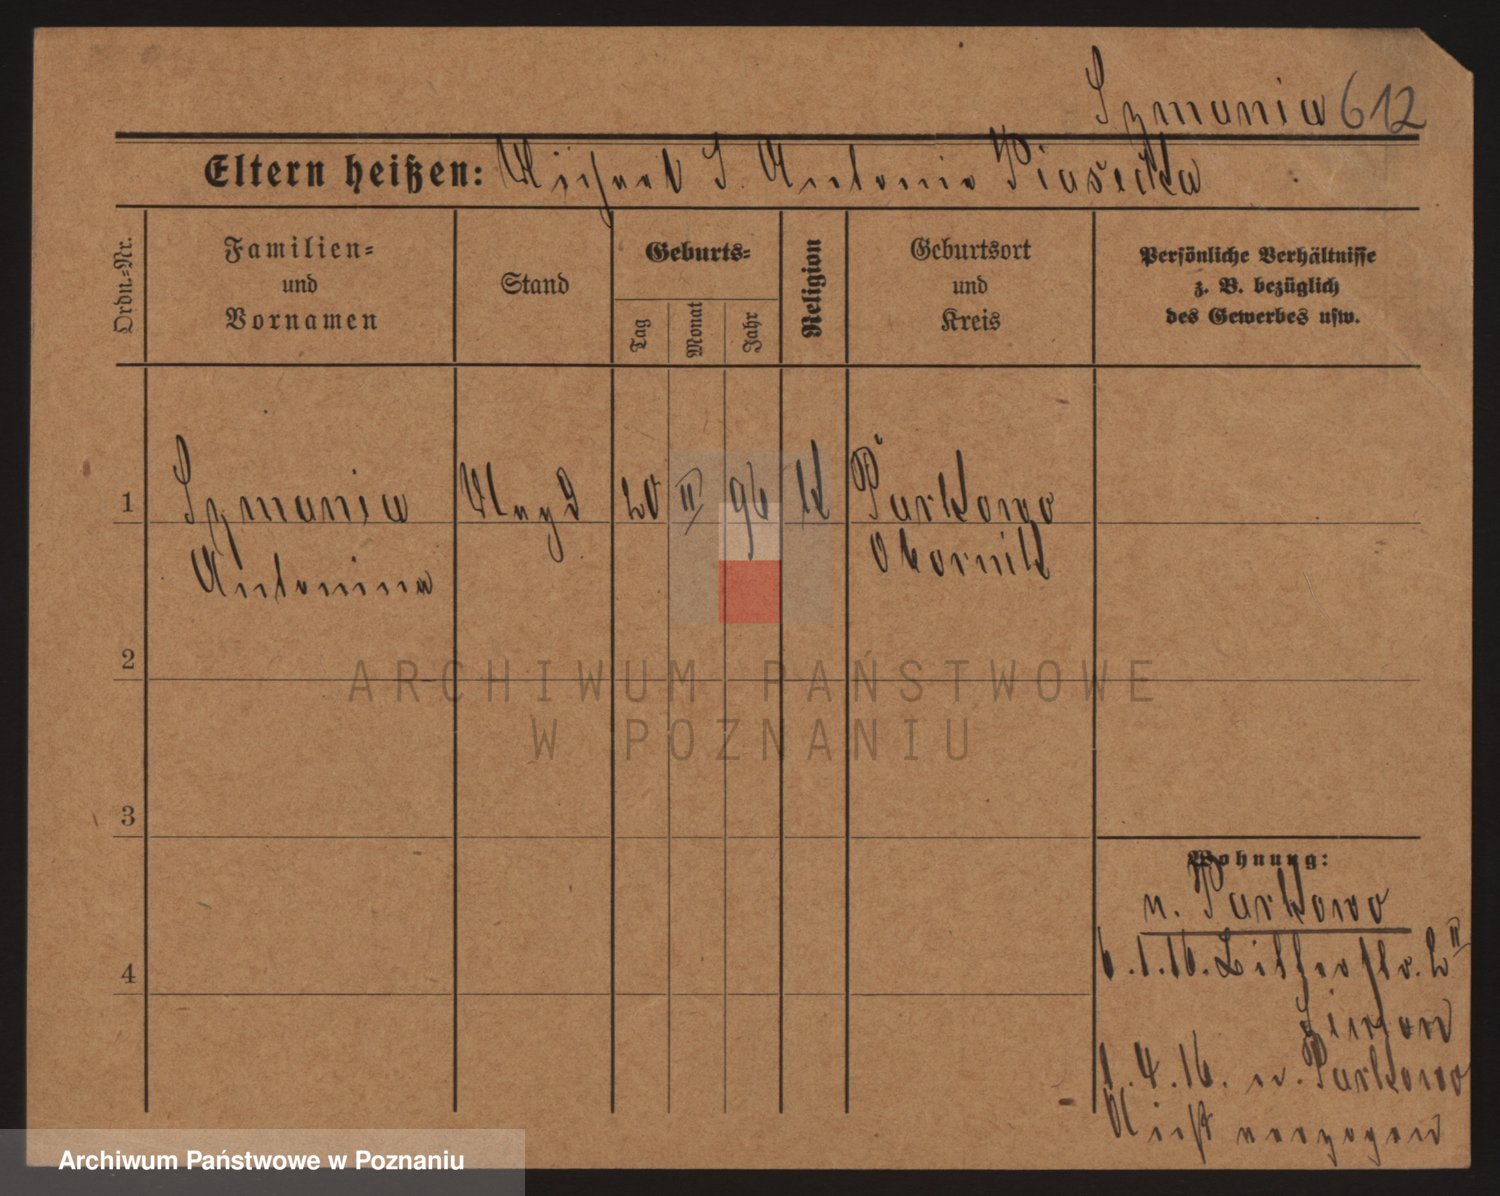 Szmania 612
Eltern heißen: Michael S. Antonie Piasecka
Ordn.-Nr.
Familien-
und
Vornamen
Stand
Geburts-
Tag
Monat
Jahr
Religion
Geburtsort
und
Kreis
Persönliche Verhältnisse
z. B. bezüglich
des Gewerbes usw.
1
Szmania
Antonina
Magd
20
II
96
K
Parkowo
Obornik
2
ARCHIWUM PAŃSTWOWE
W POZNANIU
3
4
Wohnung:
n. Parkowo
6.1.16.
1.4.16. n. Parkowo
Nicht
Archiwum Państwowe w Poznaniu